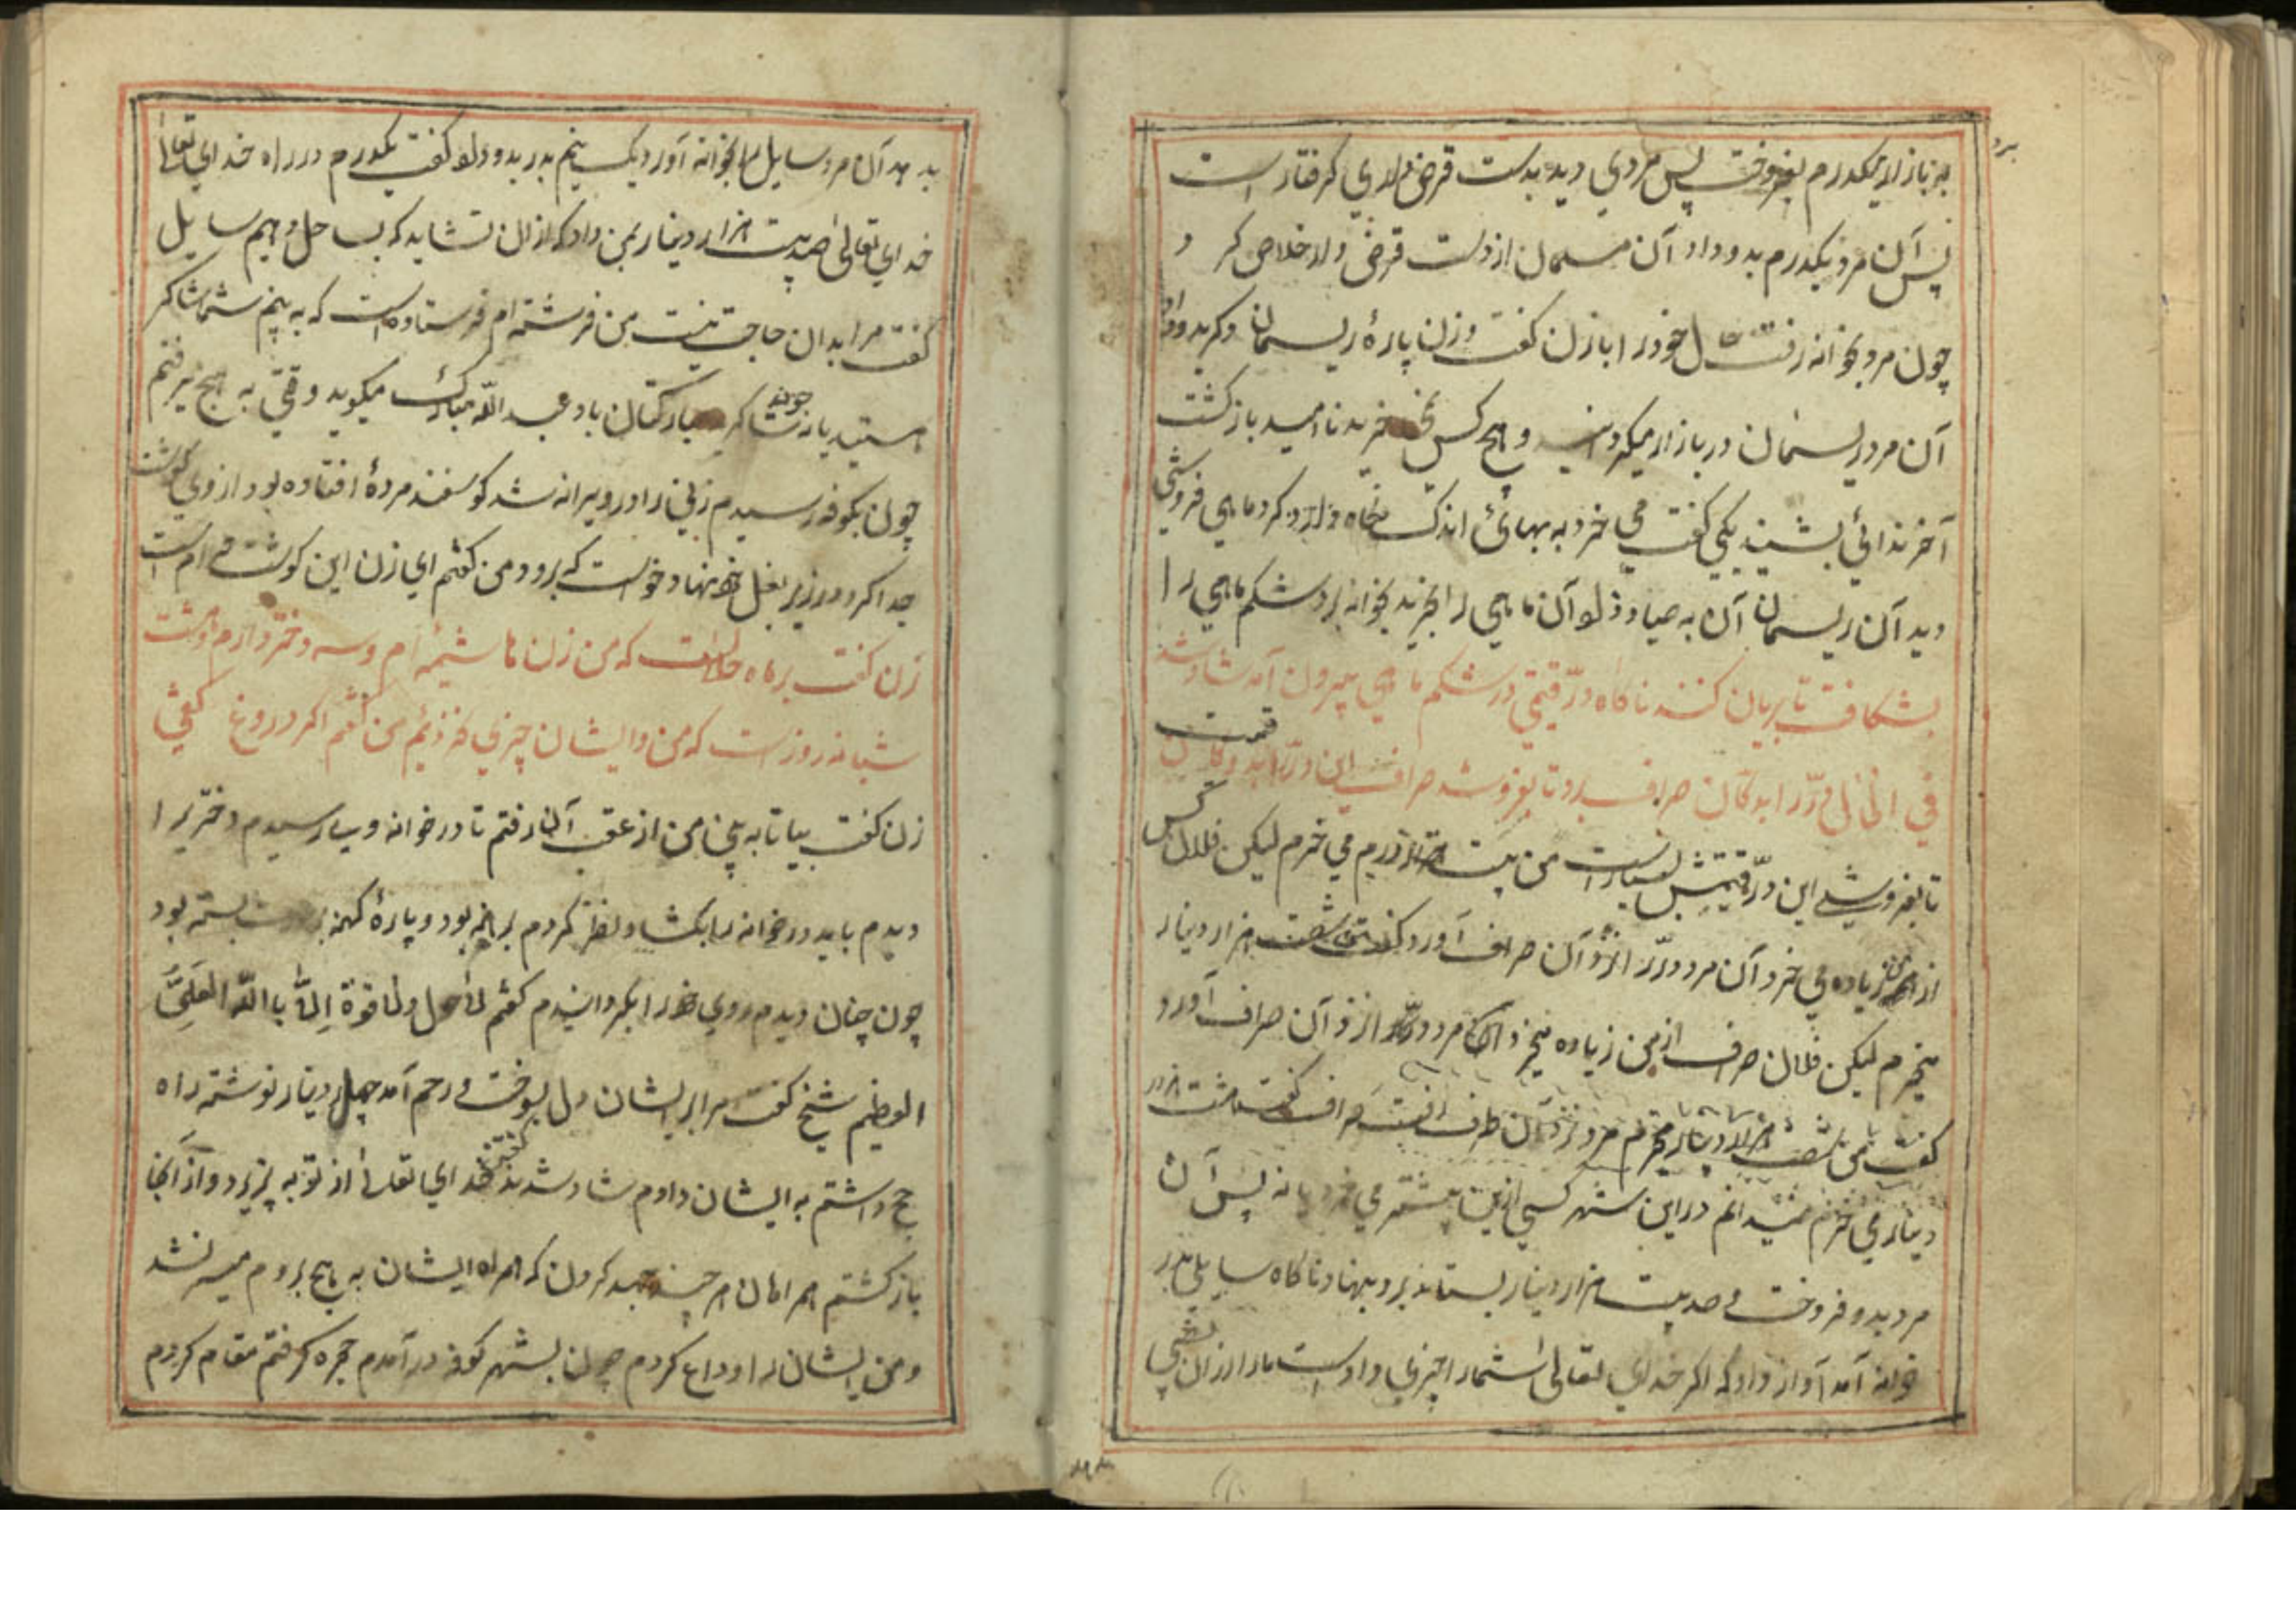 برد
به بازار بیکدرم بفروخت پس مردی دید بدست قرض داری گرفتار است
پس آن مرد یکدرم بدو داد آن مسلمان از دست قرض دار خلاص کرد
چون مرد بخوانه رفت حال خود را با زن گفت و زن پارهٔ ریسمان دیگر بدو داد
آن مرد ریسمان در بازار میگردانید و هیچ کس نمی خرید ناامید باز گشت
آخر ندائی بشنید یکی گفت می خرد به بهائی اندک نگاه کرد ماهی فروشی
دید آن ریسمان آن به صیاد داد و آن ماهی را بخرید بخوانه برد شکم ماهی را
بشکافت تا بریان کند ناگاه درّ قیمتی در شکم ماهی بیرون آمد شاد شد
فی الحال درّ را بدکان صراف برد تا بفروشد صراف این درّ را بد و گفت این قیمت
تا بفروشی این درّ قیمتش بسیار است من بیست هزار درم می خرم لیکن فلان کس
از من زیاده می خرد آن مرد درّ را نزد آن صراف آورد گفت من شصت هزار دینار
میخرم لیکن فلان صراف از من زیاده میخرد آن مرد درّ را نزد آن صراف آورد
گفت من شصت هزار دینار میخرم مرد نزد آن صراف رفت صراف گفت هشت هزار
دینار می خرم نمیدانم در این شهر کسی از این بیشتر می خرد یا نه پس آن
مرد بدو فروخت و صد بیست هزار دینار بستاند برد بنهاد ناگاه سایلی بدر
خوانه آمد آواز داد که اگر خدای تعالی شما را چیزی داد است ما را از آن بخشی
بدهید آن مرد سایل را بخوانه آورد یک نیم بدر بدو داد و گفت یکدرم در راه خدای تعالی
خدای تعالی صد بیست هزار دینار بمن داد که از آن نشاید که بساحل دهیم سایل
گفت مرا بدان حاجت نیست من فرشته ام فرستاده است که به بینم شما شاکر
هستید یا نه چون شاکر مبارکتان باد عبد اللّه مبارک میگوید وقتی به حج میرفتم
چون بکوفه رسیدم زنی را در ویرانه شد گوسفند مردهٔ افتاده بود از وی گوشت
جدا کرد و در زیر بغل بنهاد و خواست که برود من گفتم ای زن این گوشت حرام است
زن گفت بر ما حلال است که من زن هاشمیه ام و سه دختر دارم هشت
شبانه روز است که من و ایشان چیزی نخوردیم من گفتم اگر دروغ گفتی
زن گفت بیا تا به بینی من از عقب آن رفتم تا در خوانه ویرا رسیدم دختر را
دیدم باید در خوانه را بکشاد نظر کردم برهنه بود و پارهٔ کهنه بسته بود
چون چنان دیدم روی خود را بگردانیدم گفتم لا حول ولا قوة اِلّا باللّه العَلیّ
العظیم شیخ گفت مرا بر ایشان دل بسوخت و رحم آمد چهل دینار نوشته راه
حج داشتم به ایشان دادم شاد شدند گفتند خدای تعالی از تو به پزیرد و از آنجا
باز گشتم همراهان هر چند جهد کردن که همراه ایشان به حج بروم میسر نشد
و من ایشان را وداع کردم چون بشهر کوفه در آمدم حجره گرفتم مقام کردم